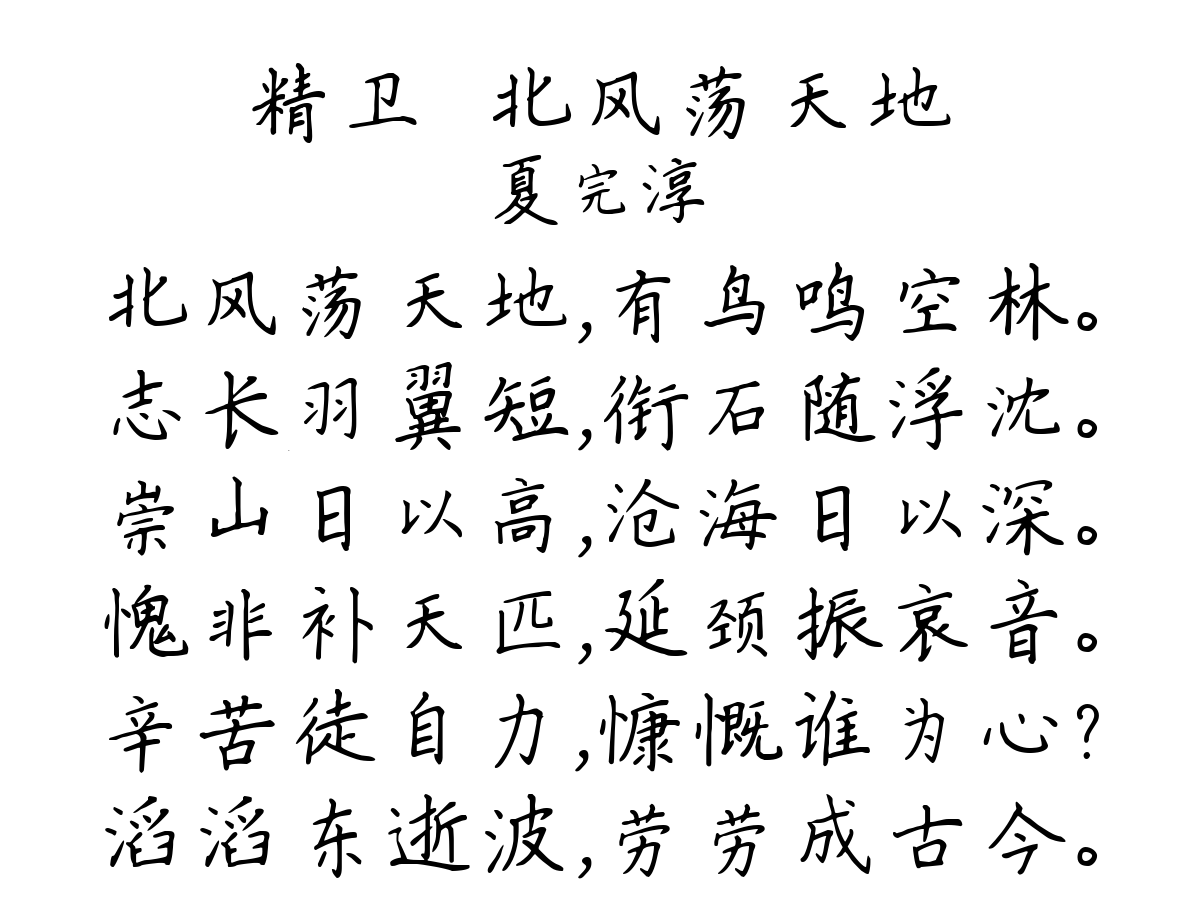 精卫 北风荡天地
夏完淳
北风荡天地,有鸟鸣空林。
志长羽翼短,衔石随浮沈。
崇山日以高,沧海日以深。
愧非补天匹,延颈振哀音。
辛苦徒自力,慷慨谁为心?
滔滔东逝波,劳劳成古今。